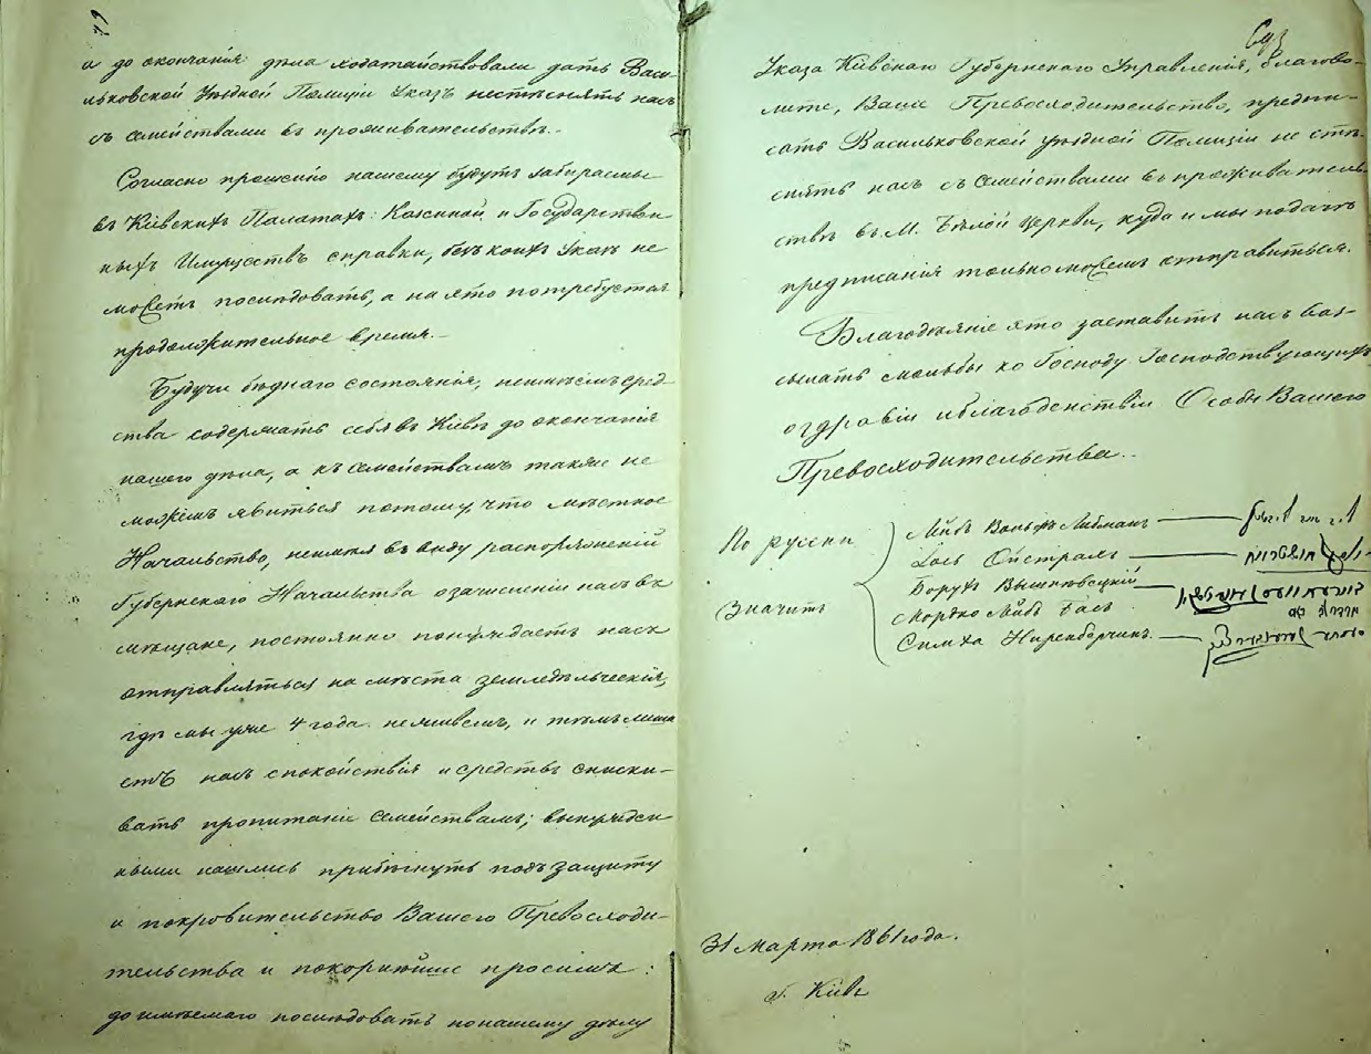 и до окончанія дѣла ходатайствовали дать Васи-
льковской Уѣздной Полиціи Указъ нестѣснять насъ
съ семействами въ проживательствѣ.-
Согласно прошенію нашему будутъ забираемы
въ Кіевскихъ Палатахъ: Казенной и Государствен-
ныхъ Имуществъ справки, безъ коихъ Указъ не
можетъ послѣдовать, а на ято потребуется
продолжительное время.-
Будучи бѣднаго состоянія, неимѣемъ сред-
ства содержать себя въ Кіевѣ до окончанія
нашего дѣла, а къ семействамъ также не
можемъ явиться потому, что мѣстное
Начальство, неимѣя въ виду распоряженій
Губернскаго Начальства о зачисленіи насъ въ
мѣщане, постоянно понуждаетъ насъ
отправляться на мѣста земледѣльческія,
гдѣ мы уже 4 года неживемъ, и тѣмъ лиша
етъ насъ спокойствія и средствъ сниски-
вать пропитаніе семействамъ; вынужден
ными нашлись прибѣгнуть подъ защиту
и покровительство Вашего Превосходи-
тельства и покорнѣйше просимъ:
до имѣемаго послѣдовать по нашему дѣлу
Указа Кіевскаго Губернскаго Управленія, благово-
лите, Ваше Превосходительство, предпи-
сать Васильковской уѣздной Полиціи не стѣ-
снять насъ съ семействами въ проживатель-
ствѣ въ М. Бѣлой Церкви, куда и мы подачъ
предписанія только можемъ отправиться.
Благодѣяніе ято заставитъ насъ воз-
сылать мольбы ко Господу Господствующихъ
о здравіи и благоденствіи Особы Вашего
Превосходительства.-
По русски
Значитъ
Лейбъ Вольфъ Либманъ
Іось Ойстрахъ
Борухъ Вышневецкій
Мордко Лейбъ Басъ
Симха Ниренборчинъ
31 Марта 1861 года.
г. Кіевъ